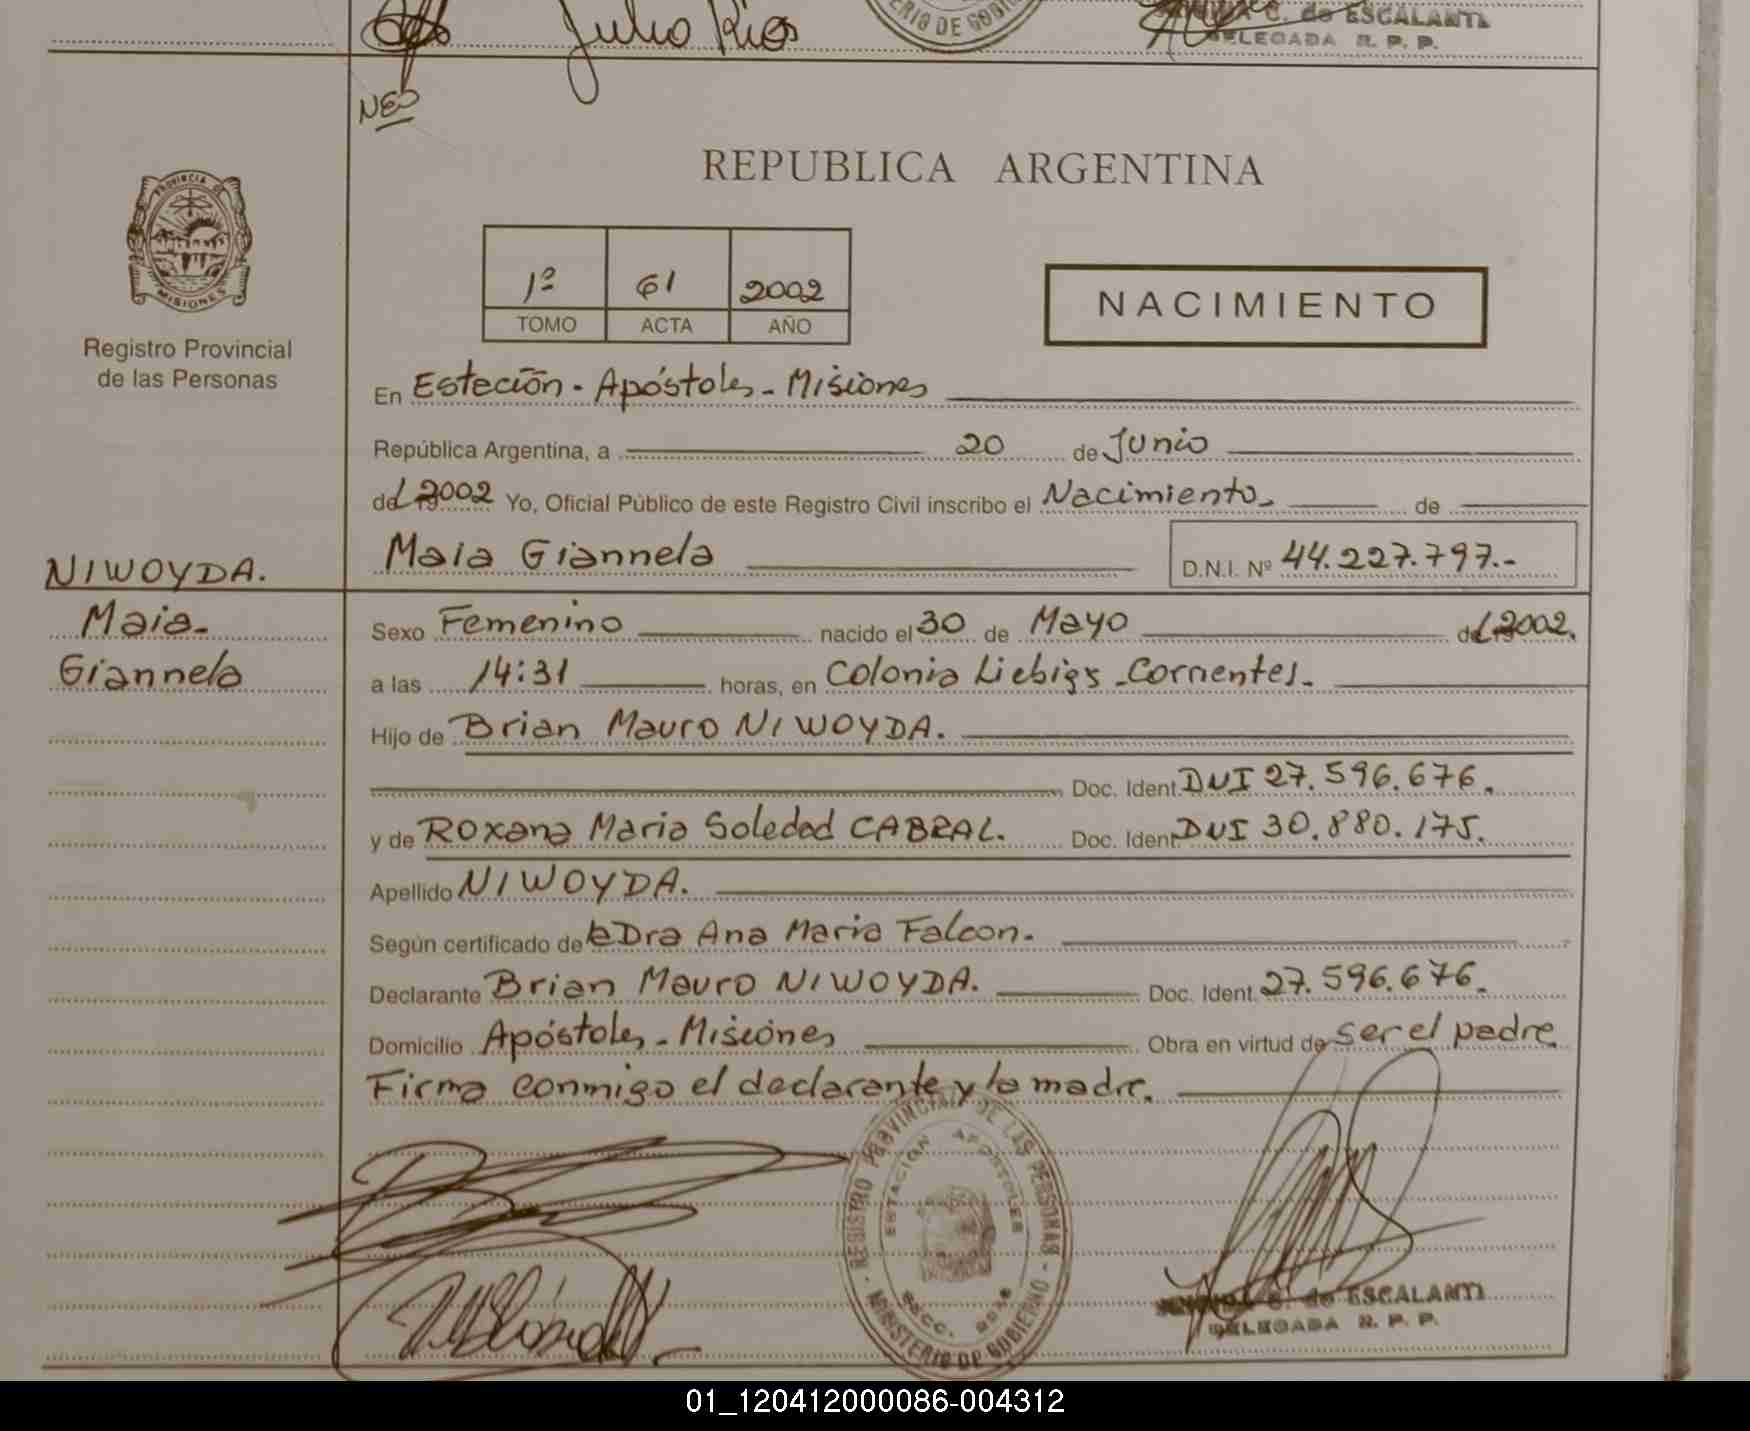 Julio Rios
MINISTERIO DE GOBIERNO
C. de ESCALANTE
DELEGADA R. P. P.
NEO
PROVINCIA DE
MISIONES
Registro Provincial
de las Personas
REPUBLICA ARGENTINA
1º 61 2002
TOMO ACTA AÑO
NACIMIENTO
En Estación - Apóstoles - Misiones
República Argentina, a 20 de Junio
del 2002 Yo, Oficial Público de este Registro Civil inscribo el Nacimiento de
Maia Giannela D.N.I. Nº 44.227.797.-
NIWOYDA.
Maia-
Giannela
Sexo Femenino nacido el 30 de Mayo del 2002.
a las 14:31 horas, en Colonia Liebigs - Corrientes.
Hijo de Brian Mauro NIWOYDA.
Doc. Ident. DNI 27.596.676.
y de Roxana Maria Soledad CABRAL. Doc. Ident. DNI 30.880.175.
Apellido NIWOYDA.
Según certificado de la Dra Ana Maria Falcon.
Declarante Brian Mauro NIWOYDA. Doc. Ident. 27.596.676.
Domicilio Apóstoles - Misiones Obra en virtud de ser el padre
Firma conmigo el declarante y la madre.
REGISTRO PROVINCIAL DE LAS PERSONAS - MINISTERIO DE GOBIERNO -
ESTACION APOSTOLES
C. de ESCALANTE
DELEGADA R. P. P.
01_120412000086-004312